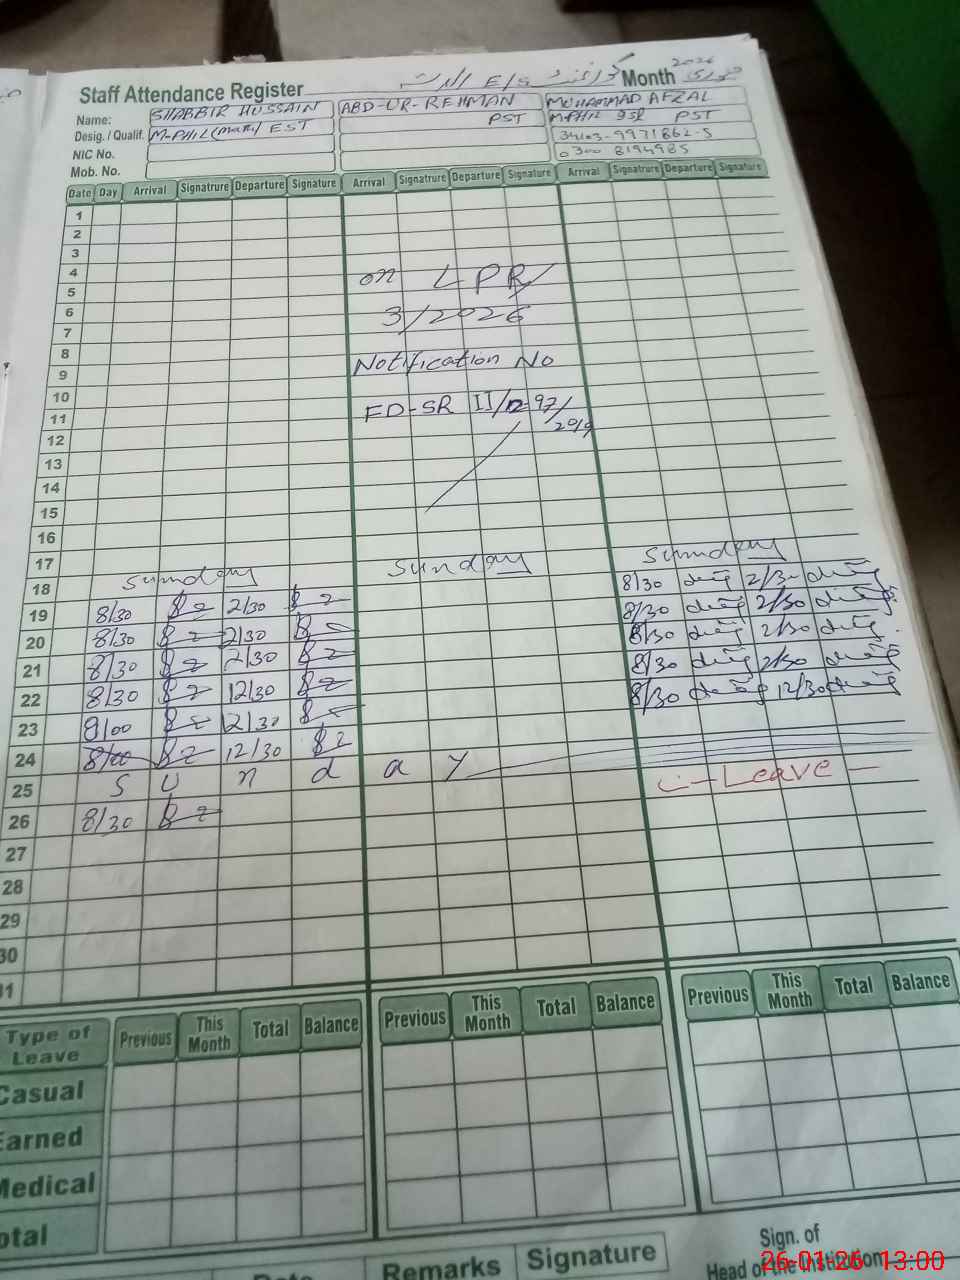 Staff Attendance Register E/S Month جنوری 2026
Name: SHABBIR HUSSAIN ABD-UR-REHMAN MUHAMMAD AFZAL
Desig. / Qualif. M-PHIL (Math) EST PST M-PHIL PST
NIC No. 34103-9971862-5
Mob. No. 0300 8194985
Date Day Arrival Signatrure Departure Signature Arrival Signatrure Departure Signature Arrival Signatrure Departure Signature
1
2
3
4 on LPR/
5
6 3/2026
7
8 Notification No
9
10 FD-SR II/2-97/
11 2019
12
13
14
15
16
17
18 Sunday Sunday Sunday
19 8/30 2/30 8/30 2/30
20 8/30 2/30 8/30 2/30
21 8/30 2/30 8/30 2/30
22 8/30 12/30 8/30 2/30
23 9/00 12/30 8/30 12/30
24 8/00 12/30
25 S u n d a y Leave
26 8/30
27
28
29
30
31
Type of Leave Previous This Month Total Balance Previous This Month Total Balance Previous This Month Total Balance
Casual
Earned
Medical
Total
Date Remarks Signature
Sign. of
Head of the Institution
26-01-26 13:00